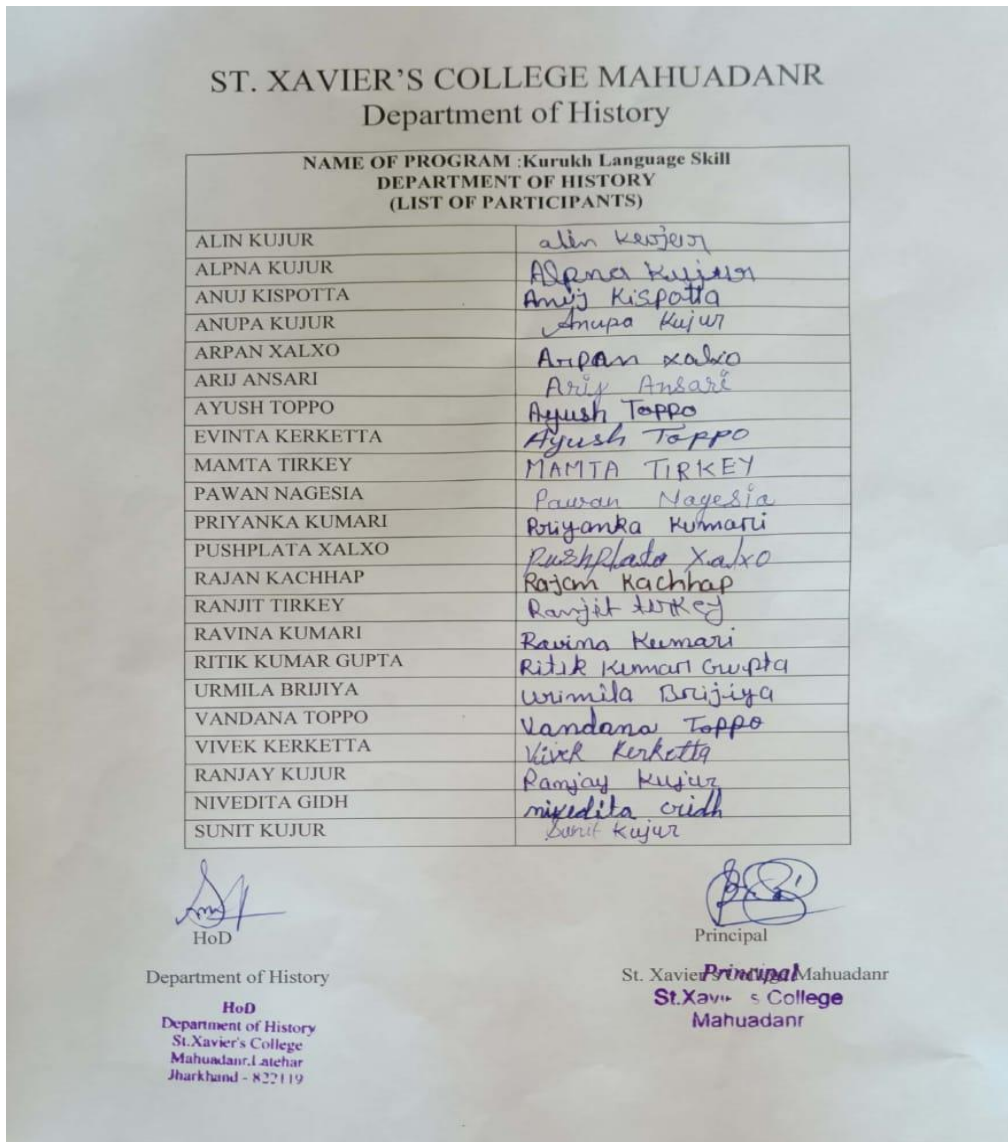 ST. XAVIER'S COLLEGE MAHUADANR
Department of History
NAME OF PROGRAM :Kurukh Language Skill
DEPARTMENT OF HISTORY
(LIST OF PARTICIPANTS)
ALIN KUJUR alin Kujur
ALPNA KUJUR Alpna Kujur
ANUJ KISPOTTA Anuj Kispotta
ANUPA KUJUR Anupa Kujur
ARPAN XALXO Arpan xalxo
ARIJ ANSARI Arij Ansari
AYUSH TOPPO Ayush Toppo
EVINTA KERKETTA Ayush Toppo
MAMTA TIRKEY MAMTA TIRKEY
PAWAN NAGESIA Pawan Nagesia
PRIYANKA KUMARI Priyanka Kumari
PUSHPLATA XALXO Pushplata Xalxo
RAJAN KACHHAP Rajan Kachhap
RANJIT TIRKEY Ranjit tirkey
RAVINA KUMARI Ravina Kumari
RITIK KUMAR GUPTA Ritik Kumar Gupta
URMILA BRIJIYA urmila Brijiya
VANDANA TOPPO Vandana Toppo
VIVEK KERKETTA Vivek Kerketta
RANJAY KUJUR Ranjay Kujur
NIVEDITA GIDH nivedita Gidh
SUNIT KUJUR Sunit Kujur
HoD Principal
Department of History St. Xavier's College Mahuadanr
Principal
HoD St.Xavier's College
Department of History Mahuadanr
St.Xavier's College
Mahuadanr.Latehar
Jharkhand - 822119